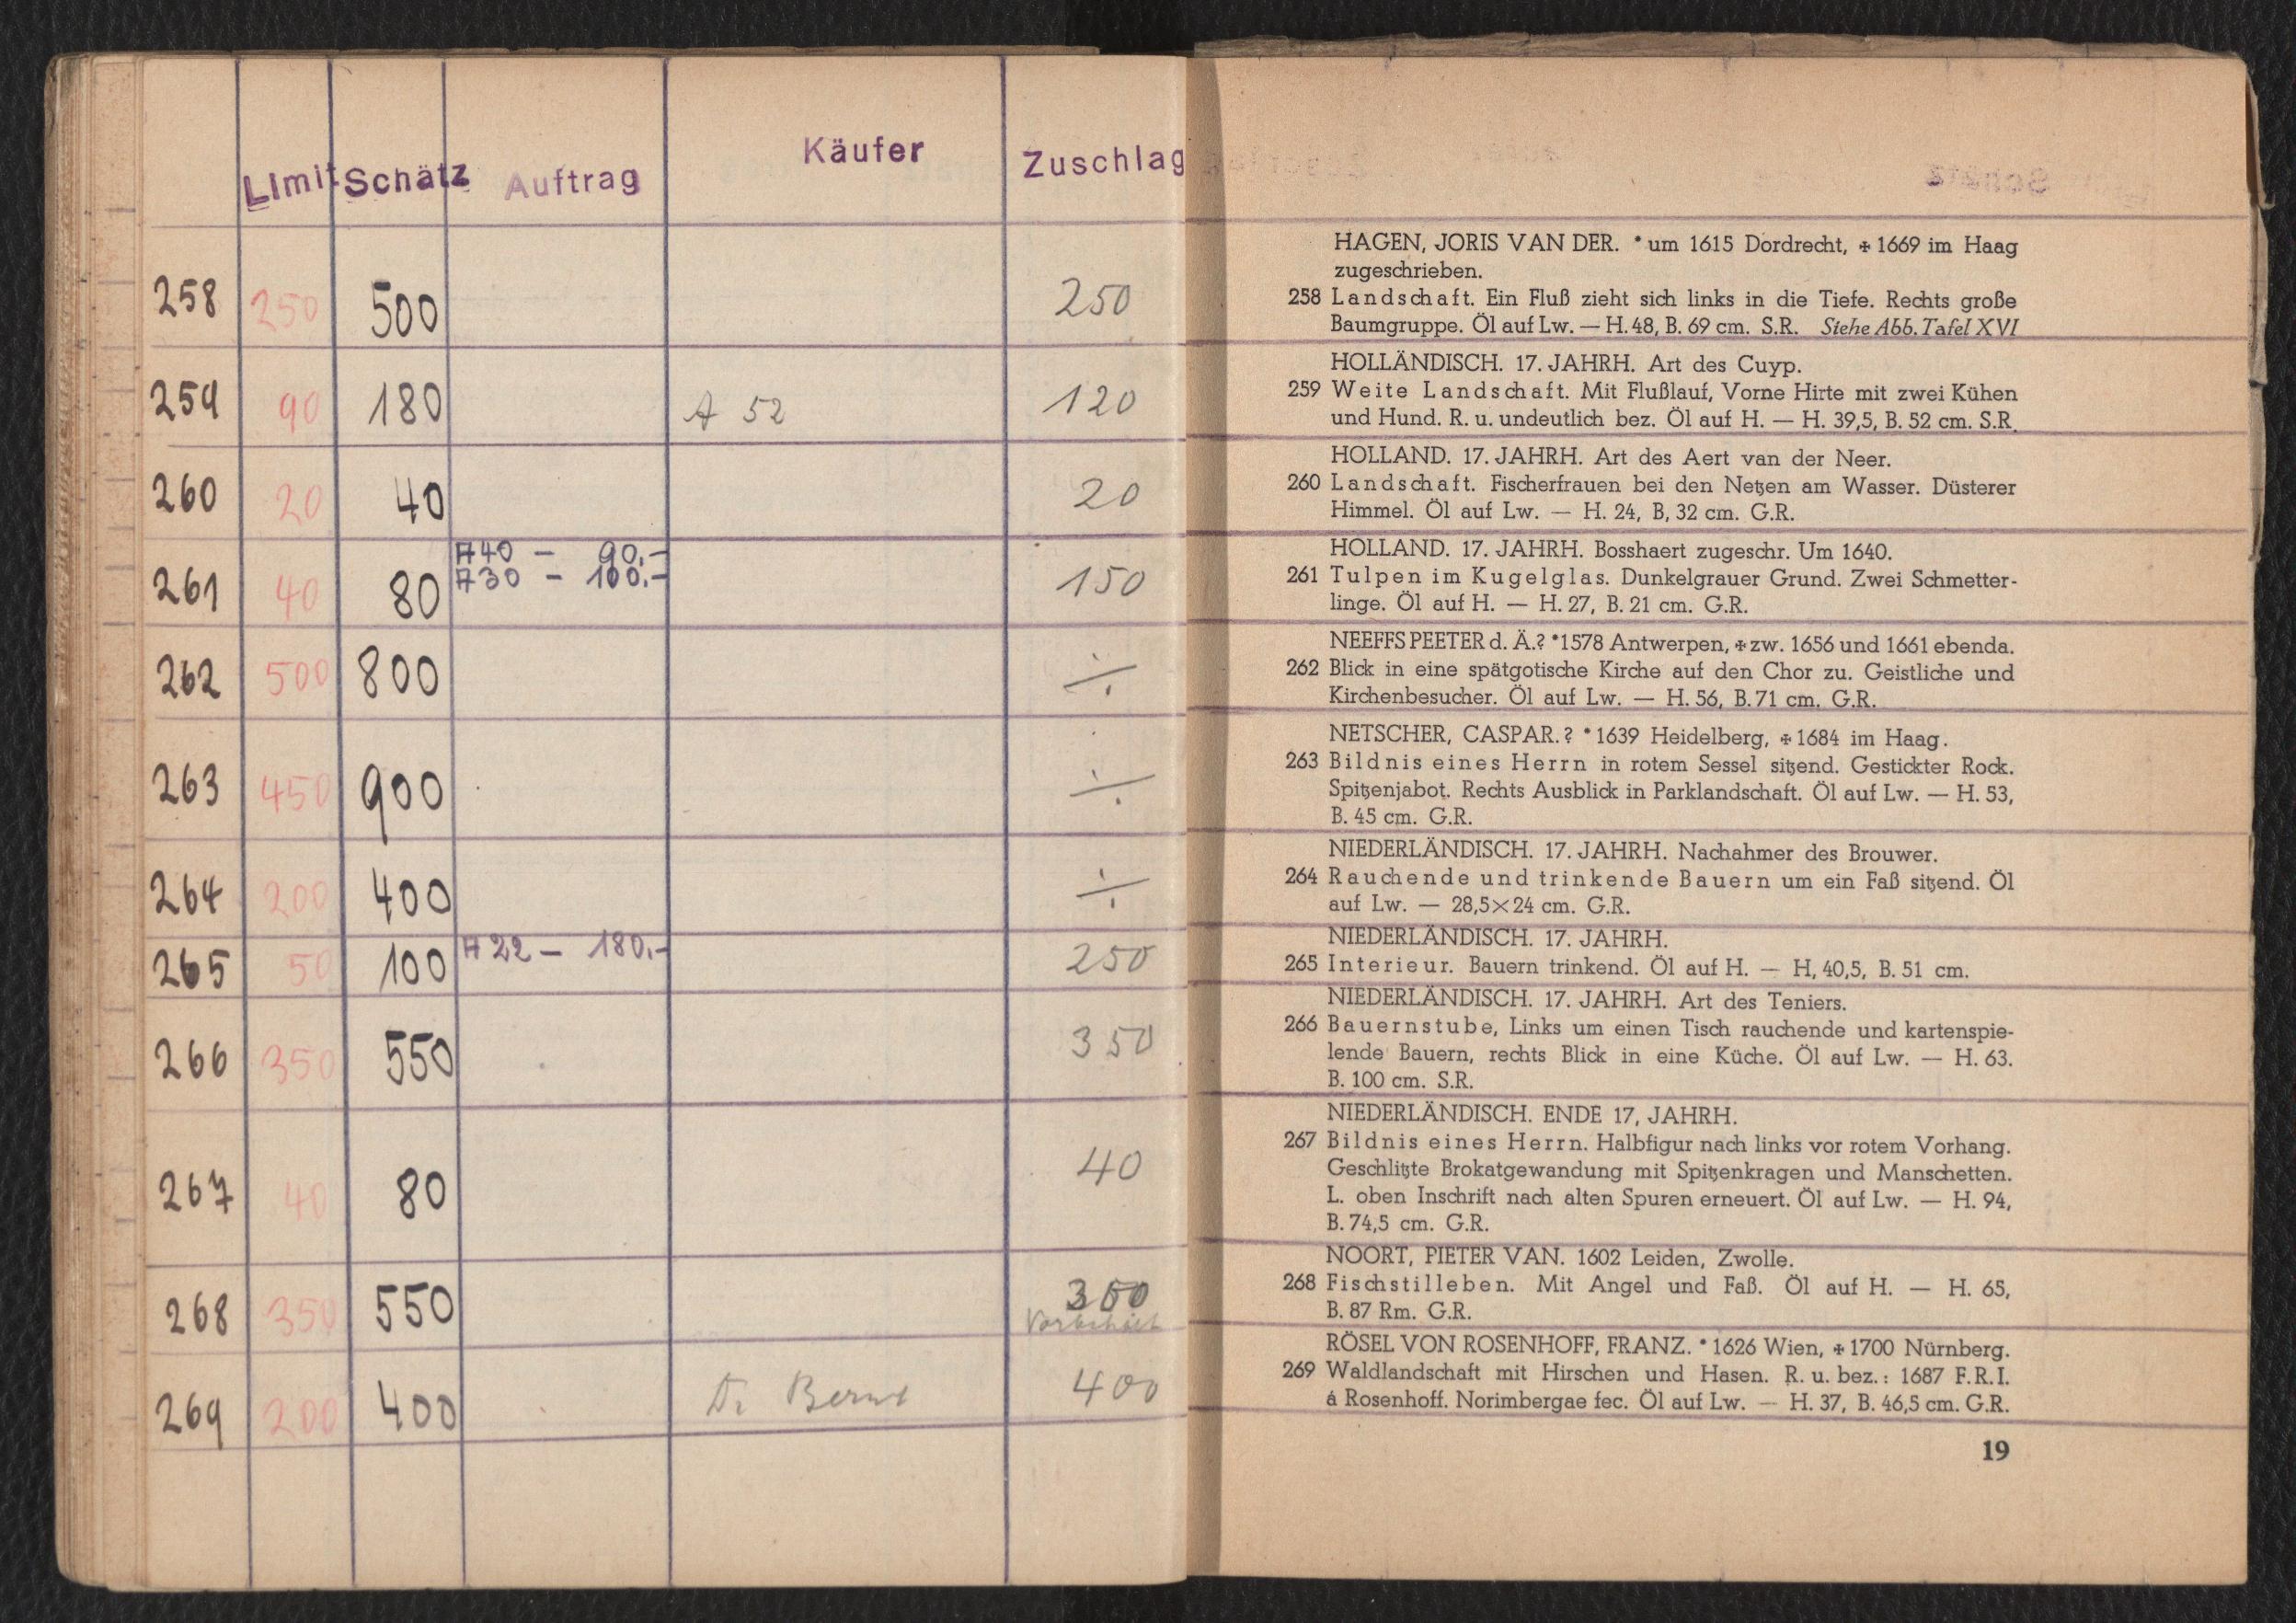 Limit Schätz Auftrag Käufer Zuschlag
258 250 500 250
259 90 180 A 52 120
260 20 40 20
261 40 80 A 40 – 90.– 150
A 30 – 100.–
262 500 800 ÷
263 450 900 ÷
264 200 400 ÷
265 50 100 A 22 – 180.– 250
266 350 550 350
267 40 80 40
268 350 550 350
Vorbehalt
269 200 400 Dr 400
HAGEN, JORIS VAN DER. * um 1615 Dordrecht, ✠ 1669 im Haag
zugeschrieben.
258 Landschaft. Ein Fluß zieht sich links in die Tiefe. Rechts große
Baumgruppe. Öl auf Lw. — H. 48, B. 69 cm. S.R. Siehe Abb. Tafel XVI
HOLLÄNDISCH. 17. JAHRH. Art des Cuyp.
259 Weite Landschaft. Mit Flußlauf, Vorne Hirte mit zwei Kühen
und Hund. R. u. undeutlich bez. Öl auf H. — H. 39,5, B. 52 cm. S.R.
HOLLAND. 17. JAHRH. Art des Aert van der Neer.
260 Landschaft. Fischerfrauen bei den Netzen am Wasser. Düsterer
Himmel. Öl auf Lw. — H. 24, B, 32 cm. G.R.
HOLLAND. 17. JAHRH. Bosshaert zugeschr. Um 1640.
261 Tulpen im Kugelglas. Dunkelgrauer Grund. Zwei Schmetter-
linge. Öl auf H. — H. 27, B. 21 cm. G.R.
NEEFFS PEETER d. Ä.? * 1578 Antwerpen, ✠ zw. 1656 und 1661 ebenda.
262 Blick in eine spätgotische Kirche auf den Chor zu. Geistliche und
Kirchenbesucher. Öl auf Lw. — H. 56, B. 71 cm. G.R.
NETSCHER, CASPAR.? * 1639 Heidelberg, ✠ 1684 im Haag.
263 Bildnis eines Herrn in rotem Sessel sitzend. Gestickter Rock.
Spitzenjabot. Rechts Ausblick in Parklandschaft. Öl auf Lw. — H. 53,
B. 45 cm. G.R.
NIEDERLÄNDISCH. 17. JAHRH. Nachahmer des Brouwer.
264 Rauchende und trinkende Bauern um ein Faß sitzend. Öl
auf Lw. — 28,5×24 cm. G.R.
NIEDERLÄNDISCH. 17. JAHRH.
265 Interieur. Bauern trinkend. Öl auf H. — H, 40,5, B. 51 cm.
NIEDERLÄNDISCH. 17. JAHRH. Art des Teniers.
266 Bauernstube, Links um einen Tisch rauchende und kartenspie-
lende Bauern, rechts Blick in eine Küche. Öl auf Lw. — H. 63.
B. 100 cm. S.R.
NIEDERLÄNDISCH. ENDE 17, JAHRH.
267 Bildnis eines Herrn. Halbfigur nach links vor rotem Vorhang.
Geschlitzte Brokatgewandung mit Spitzenkragen und Manschetten.
L. oben Inschrift nach alten Spuren erneuert. Öl auf Lw. — H. 94,
B. 74,5 cm. G.R.
NOORT, PIETER VAN. 1602 Leiden, Zwolle.
268 Fischstilleben. Mit Angel und Faß. Öl auf H. — H. 65,
B. 87 Rm. G.R.
RÖSEL VON ROSENHOFF, FRANZ. * 1626 Wien, ✠ 1700 Nürnberg.
269 Waldlandschaft mit Hirschen und Hasen. R. u. bez.: 1687 F.R.I.
á Rosenhoff. Norimbergae fec. Öl auf Lw. — H. 37, B. 46,5 cm. G.R.
19